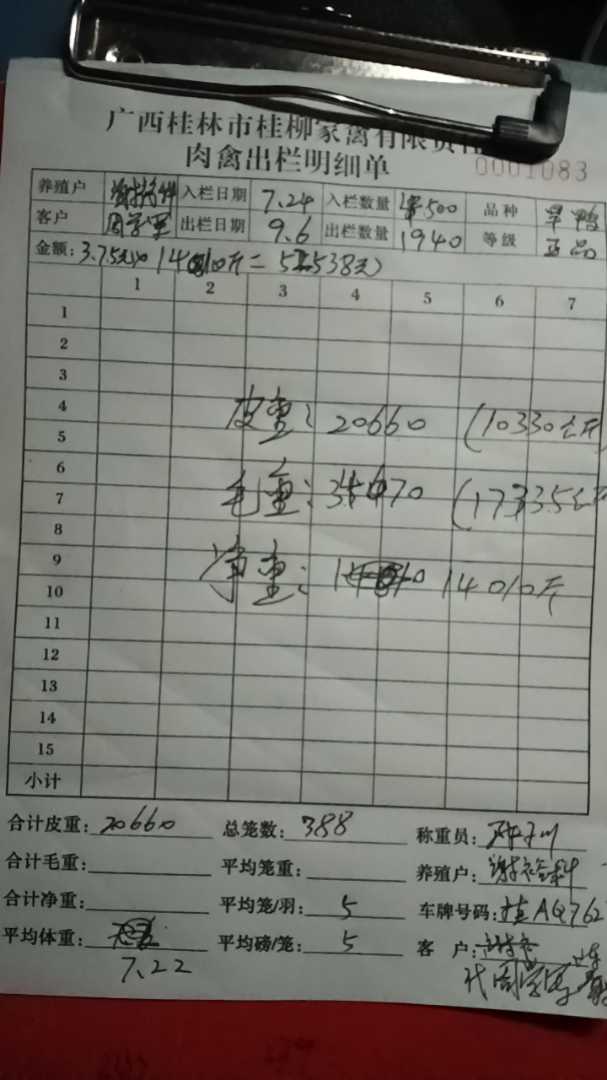 广西桂林市桂柳家禽有限责任
肉禽出栏明细单
0001083
养殖户 入栏日期 7.24 入栏数量 500 品种 旱鸭
客户 周学军 出栏日期 9.6 出栏数量 1940 等级 正品
金额: 3.75元 14010斤 = 538元
1 2 3 4 5 6 7
1
2
3
4
皮重: 20660 (10330公斤
5
6
7
毛重: 34670 (17335公斤
8
9
净重: 14010斤
10
11
12
13
14
15
小计
合计皮重: 20660 总笼数: 388 称重员:
合计毛重: 平均笼重: 养殖户:
合计净重: 平均笼/羽: 5 车牌号码: 桂AQ762
平均体重: 平均磅/笼: 5 客户:
7.22 代周学军